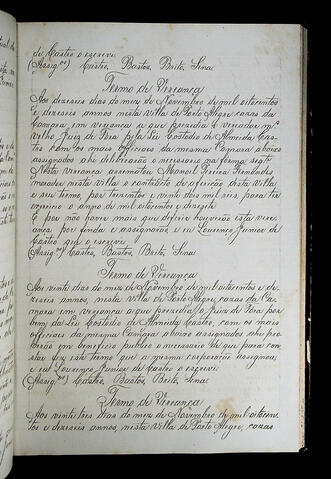 de Castro o escrevi
(Assig.os) Castro, Bastos, Brito, Sena.
Termo de Vereança
Aos dezeseis dias do mez de Novembro de mil oitocentos
e dezeseis annos nesta villa de Porto Alegre, cazas da
Camara em vereança a que prezidio o vereador m.
velho, Juiz de Fora pela Lei Custodio de Almeida Cas-
tro, com os mais officiaes da mesma Camara abaixo
assignados ahi deliberarão o necessario na forma seg.te
Nesta vereança arrematou Manoel Pereira Fernandes
morador nesta villa o contracto de aferição desta villa
e seu termo, por trezentos e vinte dois mil reis para ter
exercicio o anno de mil oitocentos e dezesete.
E por não haver mais que deferir houverão esta vere-
ança por finda e assignarão, e eu Lourenço Junior de
Castro que o escrevi.
(Assig.os) Castro, Bastos, Brito, Sena.
Termo de Vereança
Aos vinte dias do mez de Novembro de mil oitocentos e de-
zeseis annos, nesta villa de Porto Alegre, cazas da Ca-
mara em vereança a que prezidio, o Juiz de Fora por
bem da Lei Custodio de Almeida Castro, com os mais
officiaes da mesma Camara abaixo assignados
em beneficio publico o necessario de que para con-
star fez este termo que a mesma corporação assignou;
e eu Lourenço Junior de Castro o escrevi
(Assig.os) Castro, Bastos, Brito, Sena.
Termo de Vereança
Aos vinte tres dias do mez de Novembro de mil oitocen-
tos e dezeseis annos, nesta villa de Porto Alegre, cazas